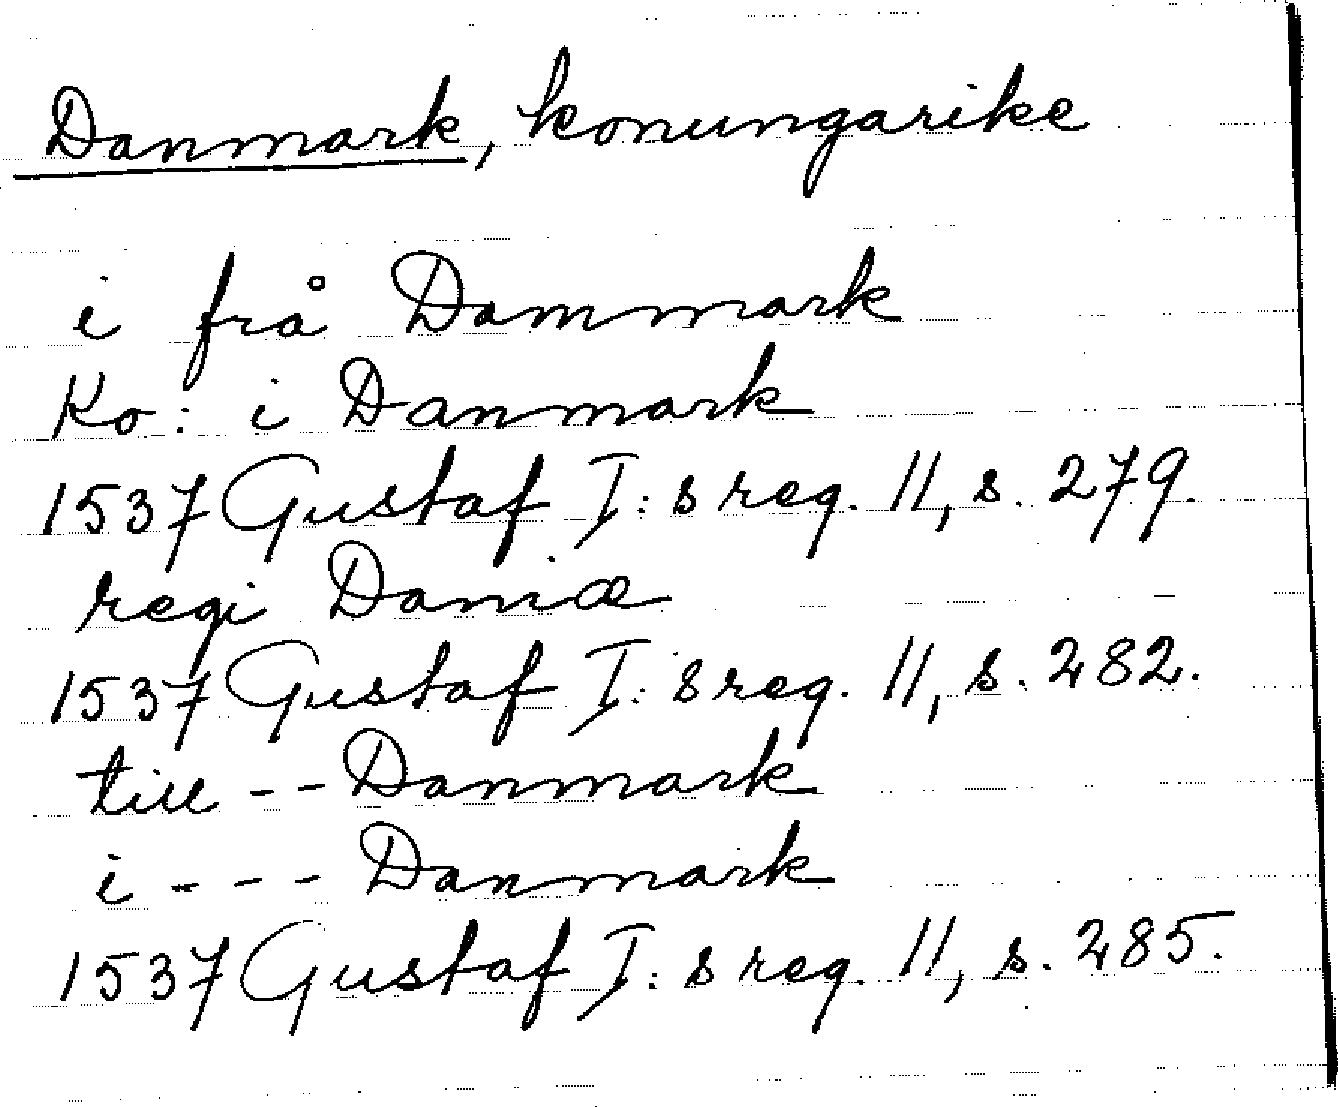 Danmark, konungarike
i frå Danmark
Ko: i Danmark
1537 Gustaf I:s reg. 11, s. 279.
regi Daniæ
1537 Gustaf I:s reg. 11, s. 282.
till -- Danmark
i --- Danmark
1537 Gustaf I:s reg. 11, s. 285.